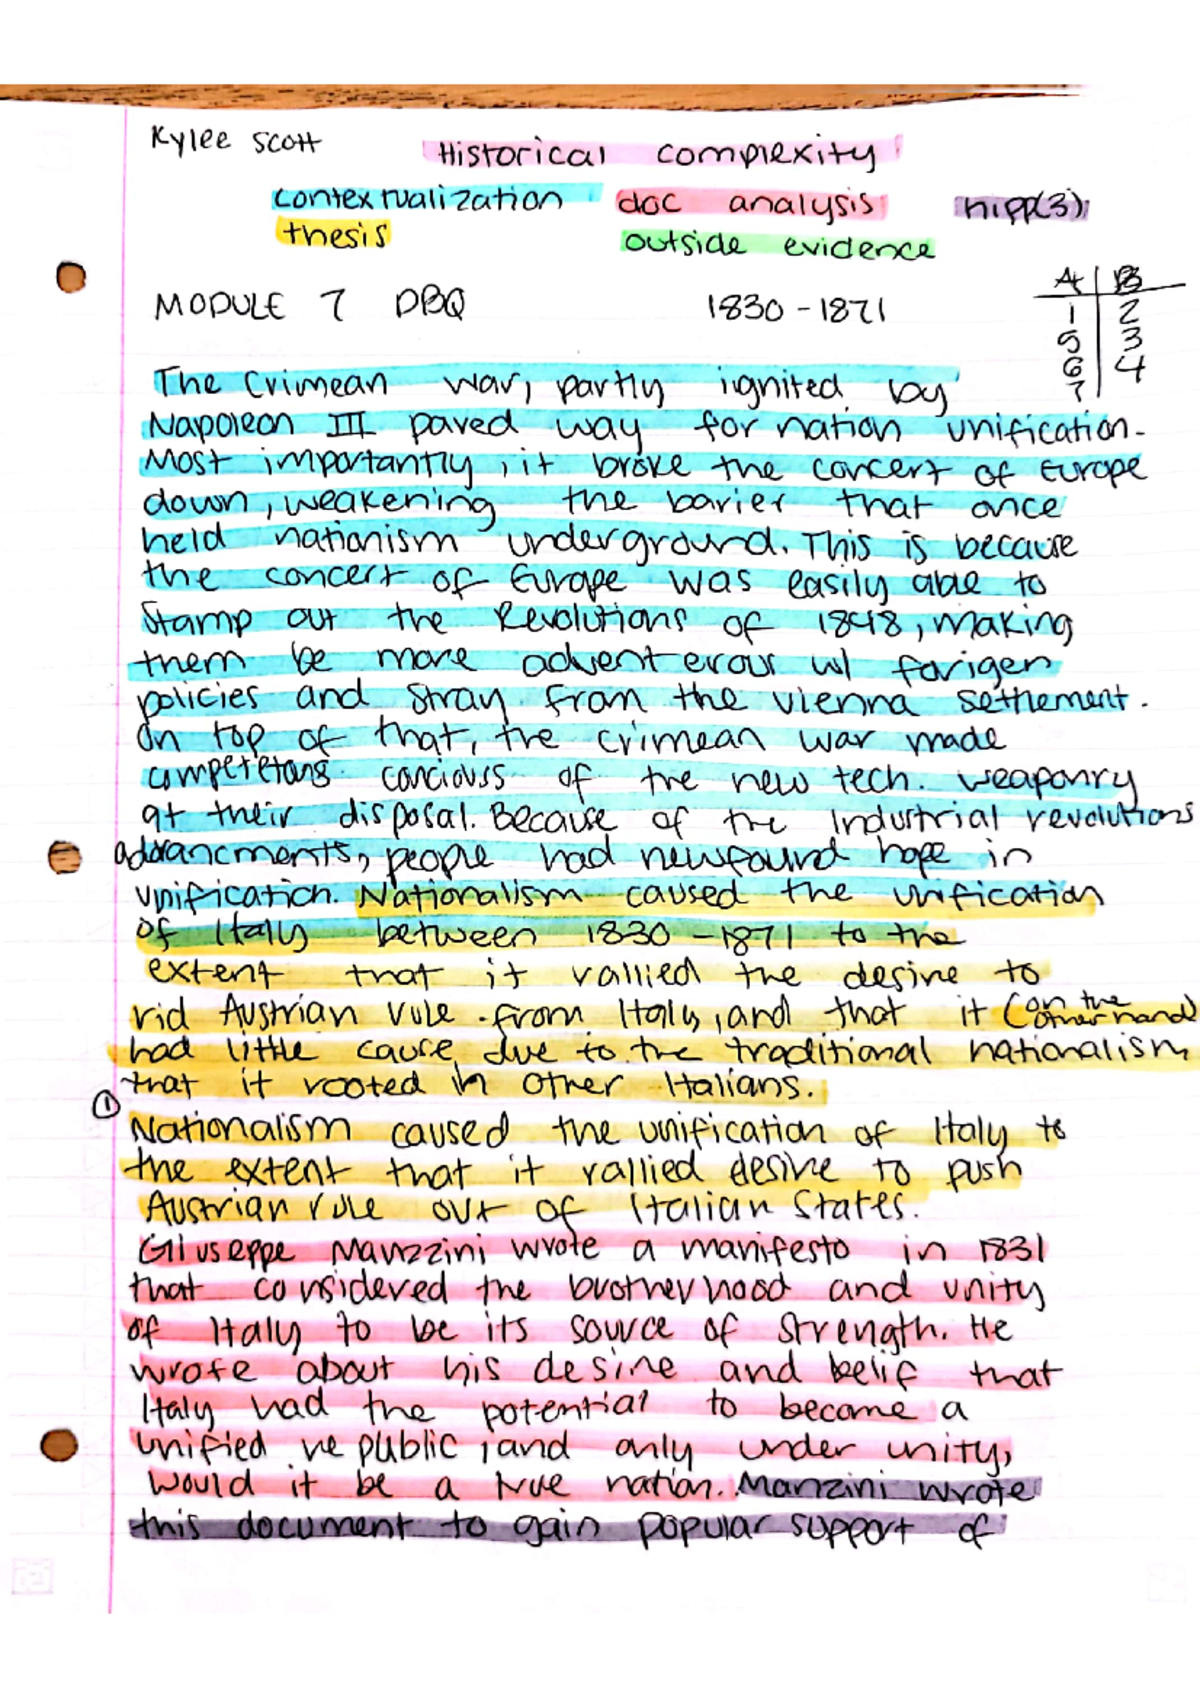 Kylee Scott
Historical complexity
contextualization doc analysis hipp(3)
thesis outside evidence
A | B
MODULE 7 DBQ 1830-1871
1 | 2
5 | 3
6 | 4
7 |
The Crimean war, partly ignited by
Napoleon III paved way for nation unification.
Most importantly, it broke the concert of Europe
down, weakening the barier that once
held nationism underground. This is because
the concert of Europe was easily able to
stamp out the Revolutions of 1848, making
them be more adventerous w/ forigen
policies and stray from the vienna settlement.
On top of that, the crimean war made
competetons conciouss of the new tech. weaponry
at their disposal. Because of the industrial revolutions
advancments, people had newfound hope in
unification. Nationalism caused the unification
of Italy between 1830-1871 to the
extent that it rallied the desire to
rid Austrian rule from Italy, and that it (on the other hand)
had little cause due to the traditional nationalism
that it rooted in other Italians.
①
Nationalism caused the unification of Italy to
the extent that it rallied desire to push
Austrian rule out of Italian States.
Giuseppe Manzzini wrote a manifesto in 1831
that considered the brotherhood and unity
of Italy to be its source of strength. He
wrote about his desire and belif that
Italy had the potential to become a
unified republic, and only under unity,
would it be a true nation. Manzini wrote
this document to gain popular support of